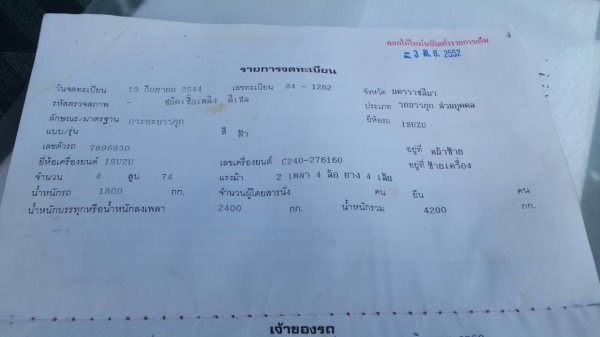 ออกให้ใหม่ฉบับเดิมรายการเต็ม
4
3 มี.ค. 2552
รายการจดทะเบียน
วันจดทะเบียน 19 กันยายน 2544 เลขทะเบียน 84 - 1262 จังหวัด นครราชสีมา
รหัสตรวจสภาพ - ชนิดเชื้อเพลิง ดีเซล ประเภท รถบรรทุก ส่วนบุคคล
ลักษณะ/มาตรฐาน กระบะบรรทุก ยี่ห้อรถ ISUZU
แบบ/รุ่น สี ฟ้า
เลขตัวรถ 7896930 อยู่ที่ หน้าซ้าย
ยี่ห้อเครื่องยนต์ ISUZU เลขเครื่องยนต์ C240-276160 อยู่ที่ ซ้ายเครื่อง
จำนวน 4 สูบ 74 แรงม้า 2 เพลา 4 ล้อ ยาง 4 เส้น
น้ำหนักรถ 1800 กก. จำนวนผู้โดยสารนั่ง คน ยืน คน
น้ำหนักบรรทุกหรือน้ำหนักลงเพลา 2400 กก. น้ำหนักรวม 4200 กก.
เจ้าของรถ